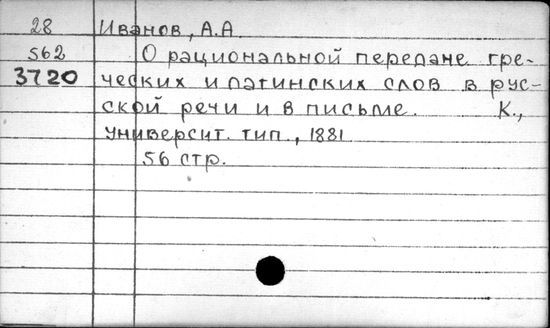 28 Иванов, А.А.
562 О рациональной передаче гре-
3720 ческих и латинских слов в рус-
ской речи и в письме. К.,
Университ. тип., 1881
56 стр.